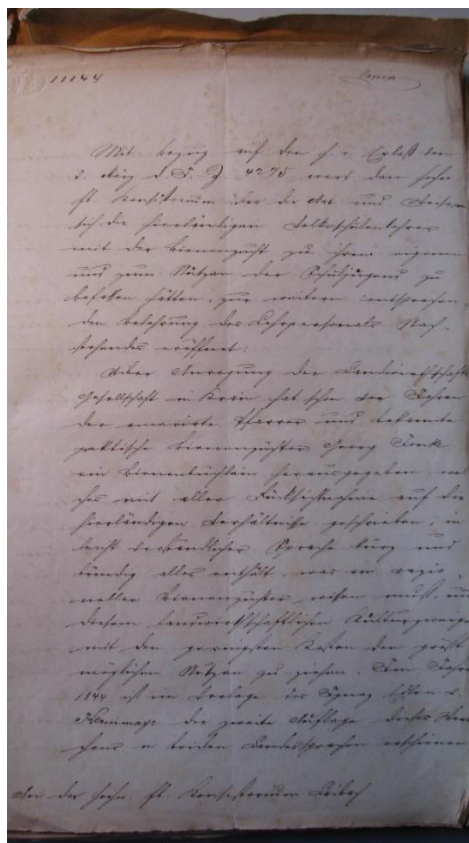 11144
Copia
Mit Bezug auf den h. o. Erlaß vom
5. März d. J. Z. 4295 wird dem hohen
fb. Konsistorium über die Art und Weise wie
sich die hierländigen Volksschulenlehrer
mit der Bienenzucht zu ihrem eigenen
und zum Nutzen der Schuljugend zu
befaßen hätten, zur weitern entsprechen
den Belehrung des Lehrpersonals Nach-
stehendes eröffnet:
Über Anregung der Landwirthschafts
Gesellschaft in Krain hat schon vor Jahren
der emerirte Pfarrer und bekannte
praktische Bienenzüchter Georg Jonk
ein Bienenbüchlein herausgegeben, wel
ches mit aller Rücksichtnahme auf die
hierländigen Verhältniße geschrieben, in
leicht verständlicher Sprache kurz und
bündig alles enthält, was ein razio
neller Bienenzüchter wißen muß, um
diesem landwirthschaftlichen Kulturzweige
mit den geringsten Kosten den größt
möglichen Nutzen zu ziehen. Im Jahre
1844 ist im Verlage des Ignaz Edlen v.
Kleinmayr die zweite Auflage dieses Werk
chens in beiden Landessprachen erschienen
An das hochw. fb. Konsistorium Laibach